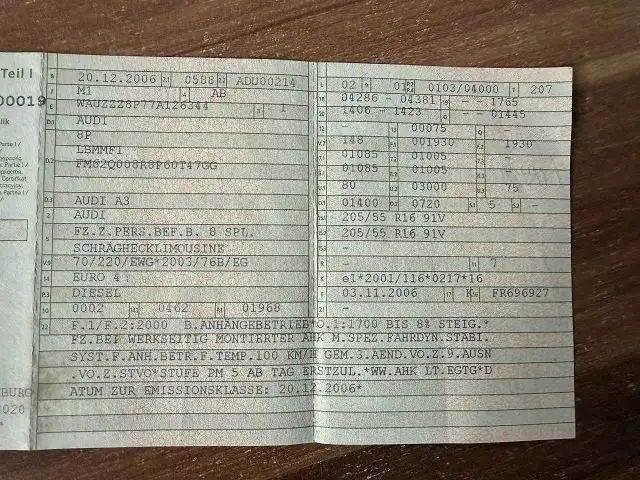 Teil I
B 20.12.2006 2.1 0588 2.2 ADU00214
J M1 4 AB
E WAUZZZ8P77A126344 3 1
D.1 AUDI
8P
D.2 LBMMF1
FM62Q008R8P60T47GG
D.3 AUDI A3
2 AUDI
5 FZ.Z.PERS.BEF.B. 8 SPL.
SCHRÄGHECKLIMOUSINE
V.9 70/220/EWG*2003/76B/EG
14 EURO 4
P.3 DIESEL
10 0002 14.1 0462 P.1 01968
L 02 9 01 P.2 P.4 0103/04000 T 207
18 04286 - 04381 19 - 1765
20 1406 - 1423 G - 01445
12 - 13 00075 Q -
V.7 148 F.1 001930 F.2 1930
7.1 01085 7.2 01085 7.3 -
8.1 01085 8.2 01085 8.3 -
U.1 80 U.2 03000 U.3 75
O.1 01400 O.2 0720 S.1 5 S.2 -
15.1 205/55 R16 91V
15.2 205/55 R16 91V
15.3 -
R - 11 7
K e1*2001/116*0217*16
6 03.11.2006 17 K 16 FR696927
21 -
22 F.1/F.2:2000 B.ANHÄNGEBETRIEB*O.1:1700 BIS 8% STEIG.*
FZ.BEI WERKSEITIG MONTIERTER AHK M.SPEZ.FAHRDYN.STABI.
SYST.F.ANH.BETR.F.TEMP.100 KM/H GEM.3.AEND.VO.Z.9.AUSN
.VO.Z.STVO*STUFE PM 5 AB TAG ERSTZUL.*WW.AHK LT.EGTG*D
ATUM ZUR EMISSIONSKLASSE: 20.12.2006*